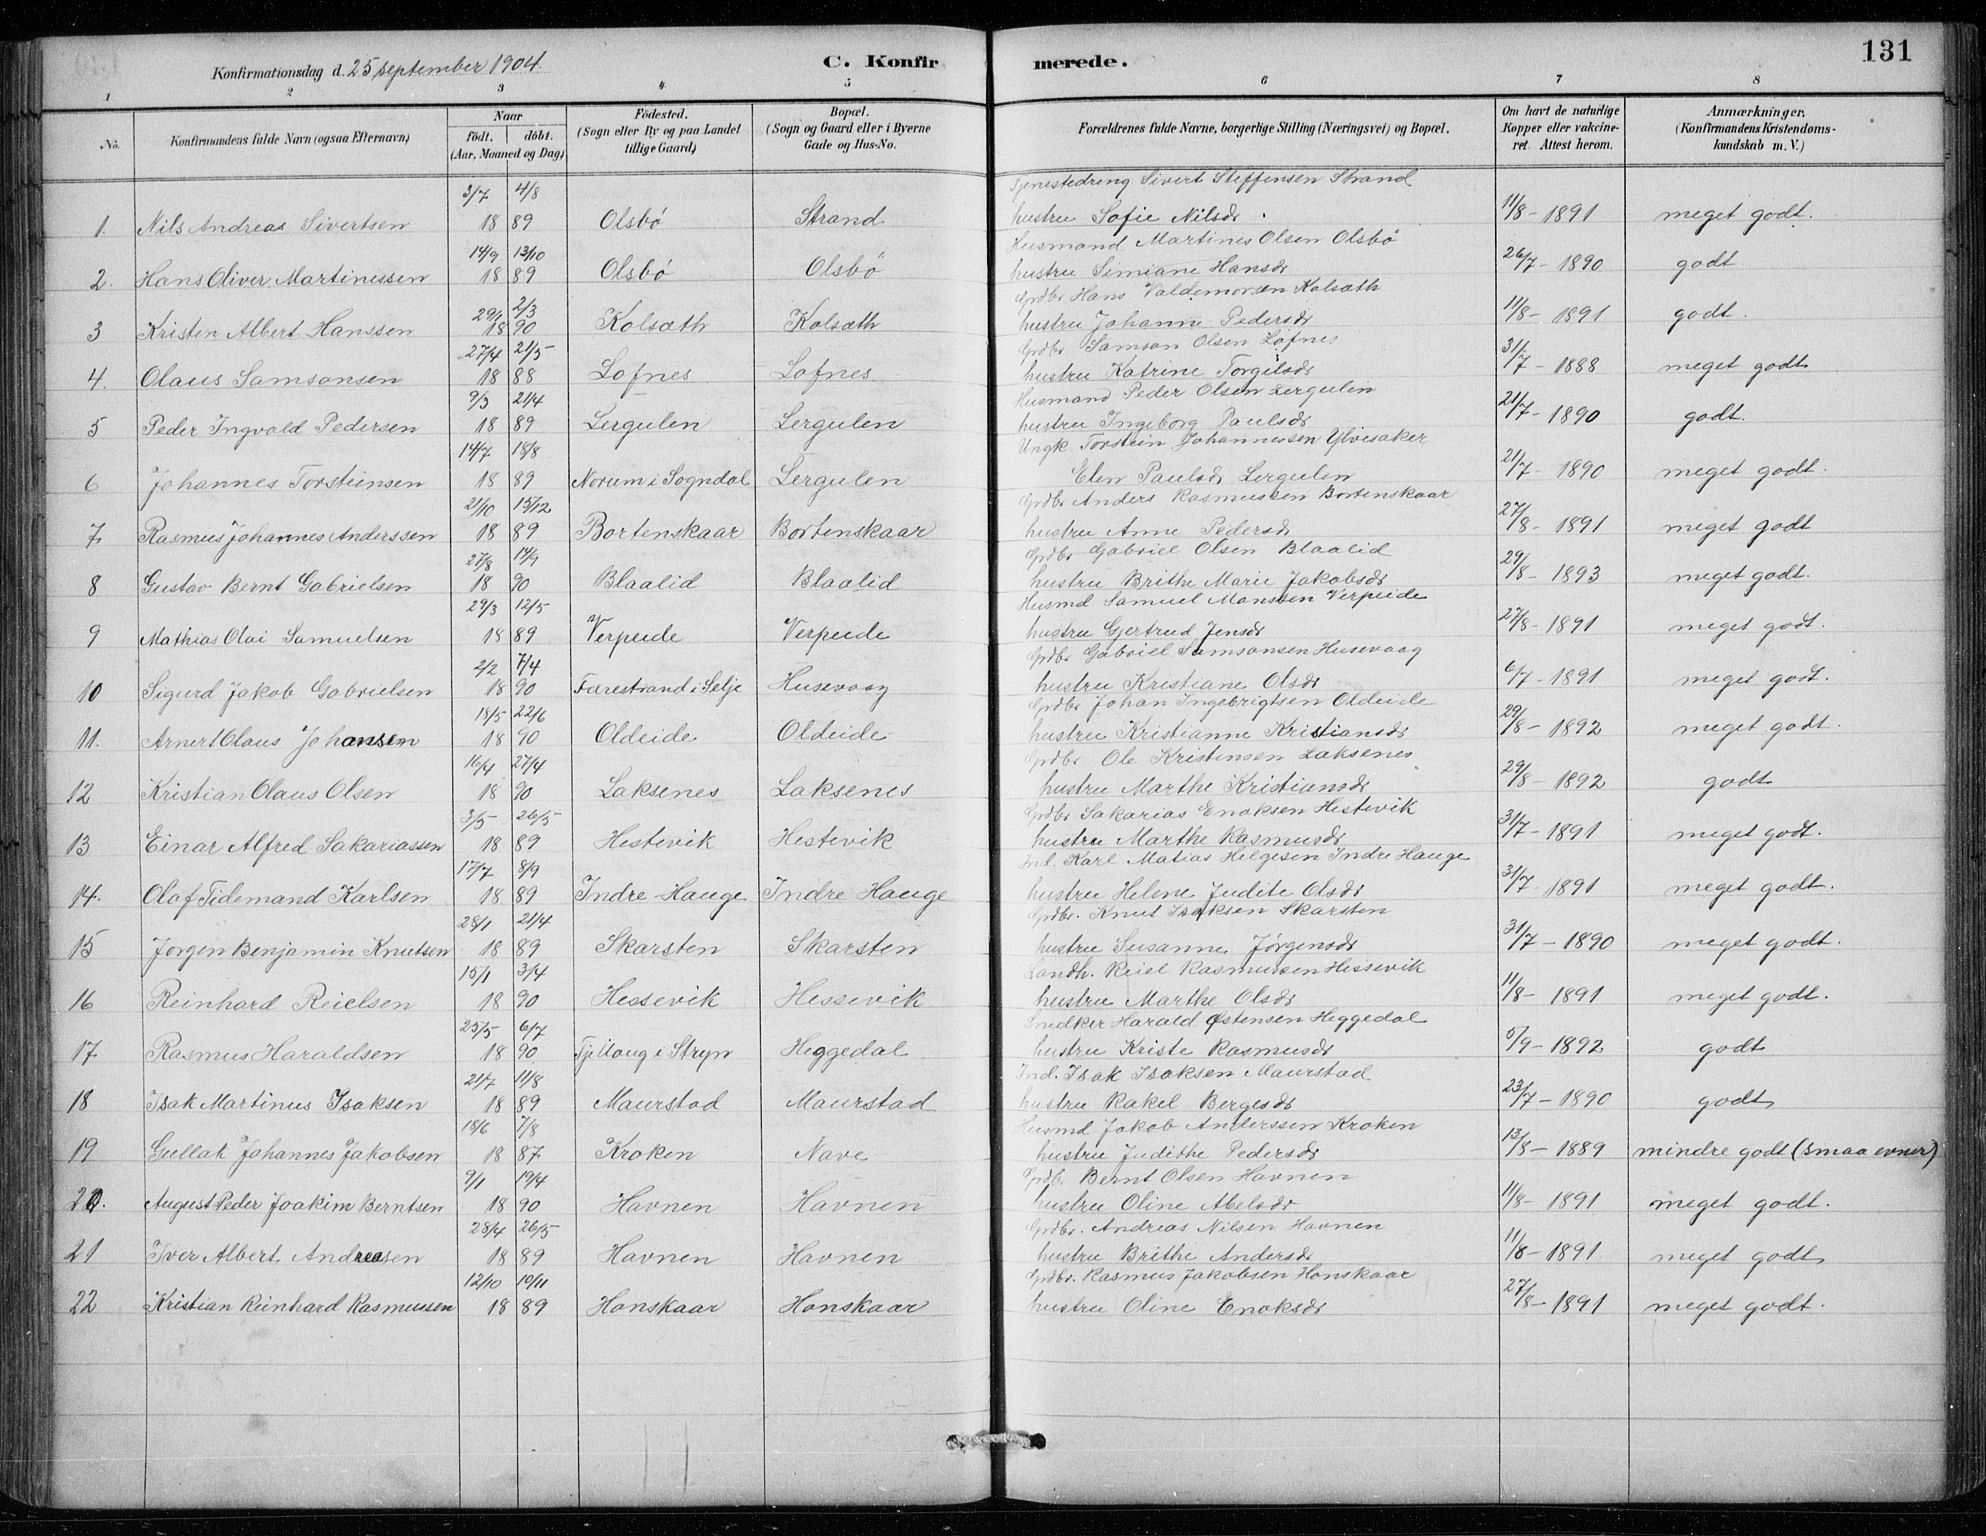 131
Konfirmationsdag d. 25 september 1904.
C. Konfirmerede.
1 2 3 4. 5 6 7 8
No. Konfirmandens fulde Navn (ogsaa Efternavn) Naar Födt. döbt. (Aar, Maaned og Dag) Födested. (Sogn eller By og paa Landet tillige Gaard) Bopæl. (Sogn og Gaard eller i Byerne Gade og Hus-No. Forældrenes fulde Navne, borgerlige Stilling (Næringsvei) og Bopæl. Om havt de naturlige Kopper eller vakcineret. Attest herom. Anmærkninger, (Konfirmandens Kristendomskundskab m. V.)
3/7 4/8 Tjenestedreng Sivert Steffensen Strand
1. Nils Andreas Sivertsen 18 89 Olsbö Strand hustru Sofie Nilsdr. 11/8 - 1891 meget godt.
14/9 13/10 Husmand Martines Olsen Olsbö
2. Hans Oliver Martinussen 18 89 Olsbö Olsbö hustru Simiane Hansdr 26/7 - 1890 godt
29/1 2/3 Grdbr Hans Valdemorsen Kolsæth
3 Kristen Albert Hanssen 18 90 Kolsæth Kolsæth hustru Johanne Pedersdr 11/8 - 1891 godt.
27/4 21/5 Grdbr Samson Olsen Lofnes
4. Olaus Samsonsen 18 88 Lofnes Lofnes hustru Katrine Torgilsdr 31/7 - 1888 meget godt
9/3 21/4 Husmand Peder Olsen Lergulen
5 Peder Ingvald Pedersen 18 89 Lergulen Lergulen hustru Ingeborg Paulsdr 21/7 - 1890 godt.
14/7 18/8 Ungk Torstein Johannessen Ylvisaker
6 Johannes Torsteinsen 18 89 Norum i Sogndal Lergulen Elen Paulsdr Lergulen 21/7 - 1890 meget godt.
21/10 15/12 Grdbr Anders Rasmussen Bortenskaar
7. Rasmus Johannes Anderssen 18 89 Bortenskaar Bortenskaar hustru Anne Pedersdr 27/8 - 1891 meget godt
27/8 14/9 Grdbr Gabriel Olsen Blaalid
8 Gustav Bernt Gabrielsen 18 90 Blaalid Blaalid hustru Brithe Marie Jakobsdr 29/8 - 1893 meget godt.
29/3 12/5 Husmd Samuel Monssen Verpeide
9 Mathias Olai Samuelsen 18 89 Verpeide Verpeide hustru Gjertrud Jensdr 27/8 - 1891 meget godt.
2/2 7/4 Grdbr Gabriel Samsonsen Husevaag
10 Sigurd Jakob Gabrielsen 18 90 Færestrand i Selje Husevaag hustru Kristiane Olsdr 6/7 - 1891 meget godt.
18/5 22/6 Grdbr Johan Ingebrigtsen Oldeide
11. Arnert Olaus Johansen 18 90 Oldeide Oldeide hustru Kristianne Kristiansdr 29/8 - 1892 meget godt.
16/4 27/4 Grdbr Ole Kristensen Laksenes
12 Kristian Olaus Olsen 18 90 Laksenes Laksenes hustru Marthe Kristiansdr 29/8 - 1892 godt
3/5 26/5 Grdbr Sakarias Enoksen Hestevik
13 Einar Alfred Sakariassen 18 89 Hestevik Hestevik hustru Marthe Rasmusdr 31/7 - 1891 meget godt.
17/7 8/9 Ind. Karl Matias Helgesen Indre Hauge
14. Olaf Tidemand Karlsen 18 89 Indre Hauge Indre Hauge hustru Helene Judite Olsdr 31/7 - 1891 meget godt.
28/1 21/4 Grdbr. Knut Isaksen Skarsten
15 Jørgen Benjamin Knutsen 18 89 Skarsten Skarsten hustru Susanne Jørgensdr 31/7 - 1890 meget godt.
15/1 3/4 Landh. Reiel Rasmussen Hessevik
16 Reinhard Reielsen 18 90 Hessevik Hessevik hustru Marthe Olsdr 11/8 - 1891 meget godt.
25/5 6/7 Snedker Harald Østensen Heggedal
17 Rasmus Haraldsen 18 90 Tjellaug i Stryn Heggedal hustru Kriste Rasmusdr 5/9 - 1892 godt
21/7 11/8 Ind. Isak Isaksen Maurstad
18 Isak Martinus Isaksen 18 89 Maurstad Maurstad hustru Rakel Bergesdr 23/7 - 1890 godt
18/6 7/8 Husmd Jakob Anderssen Kroken
19 Gullak Johannes Jakobsen 18 87 Kroken Nave hustru Judithe Pedersdr 13/8 - 1889 mindre godt (smaa evner)
9/1 19/4 Grdbr Bernt Olsen Havnen
20. August Peder Joakim Berntsen 18 90 Havnen Havnen hustru Oline Abelsdr 11/8 - 1891 meget godt.
28/4 26/5 Grdbr. Andreas Nilsen Havnen
21 Iver Albert Andreasen 18 89 Havnen Havnen hustru Brithe Andersdr 11/8 - 1891 meget godt
12/10 10/11 Grdbr. Rasmus Jakobsen Honskaar
22 Kristian Reinhard Rasmussen 18 89 Honskaar Honskaar hustru Oline Enoksdr 27/8 - 1891 meget godt.